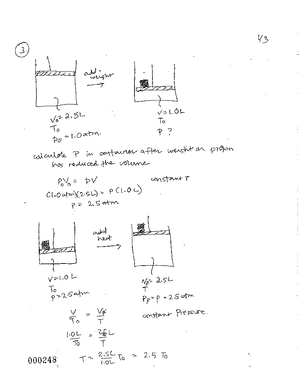 1/3
3
add weight
V₀ = 2.5L
T₀
P₀ = 1.0 atm.
V = 1.0L
T₀
P ?
calculate P in container after weight on piston
has reduced the volume
P₀V₀ = PV constant T
(1.0 atm)(2.5L) = P(1.0L)
P = 2.5 atm
add heat
V = 1.0L
T₀
P = 2.5 atm
= 2.5L
T
= P = 2.5 atm
constant Pressure
T = 2.5L/1.0L T₀ = 2.5 T₀
000248